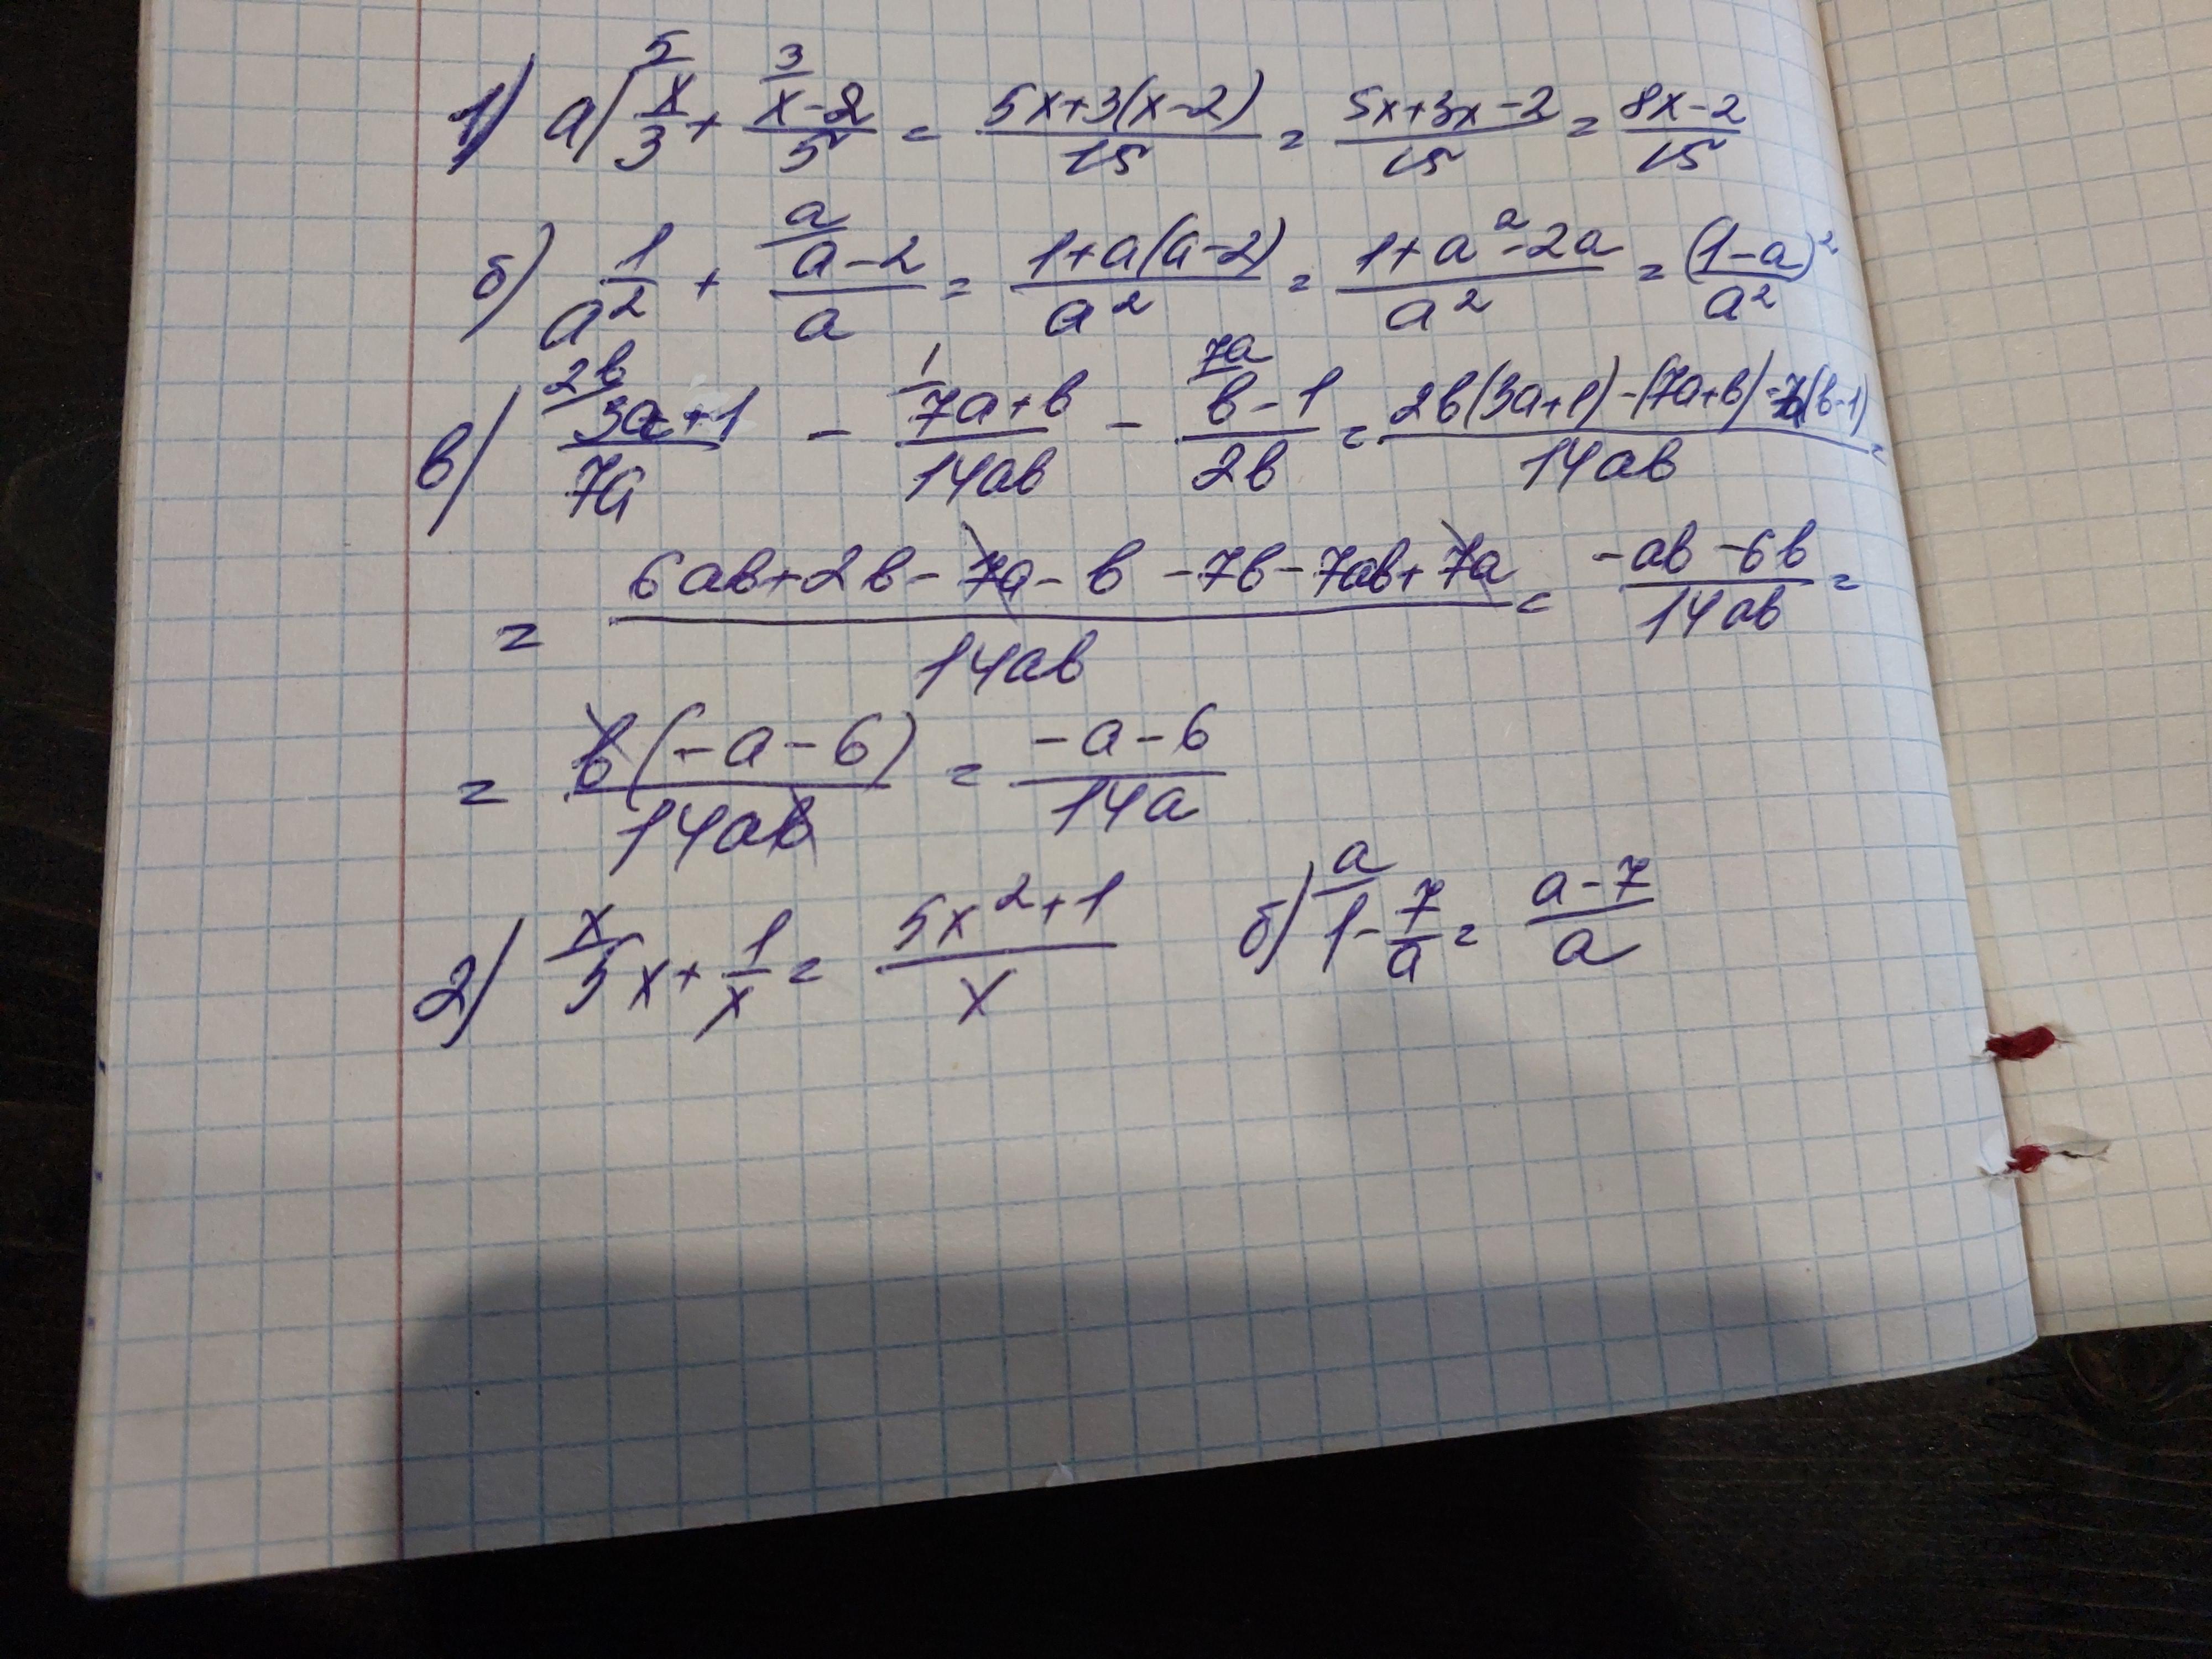 1) а) 5/ x/3 + 3/ (x-2)/5 = (5x+3(x-2))/15 = (5x+3x-2)/15 = (8x-2)/15
б) 1/a² + a/ (a-2)/a = (1+a(a-2))/a² = (1+a²-2a)/a² = (1-a)²/a²
в) 2b/ (3a+1)/7a - 1/ (7a+b)/14ab - 7a/ (b-1)/2b = (2b(3a+1)-(7a+b)-7a(b-1))/14ab =
= (6ab+2b-7a-b-7b-7ab+7a)/14ab = (-ab-6b)/14ab =
= b(-a-6)/14ab = (-a-6)/14a
2) x/ 5x + 1/x = (5x²+1)/x б) a/ 1 - 7/a = (a-7)/a